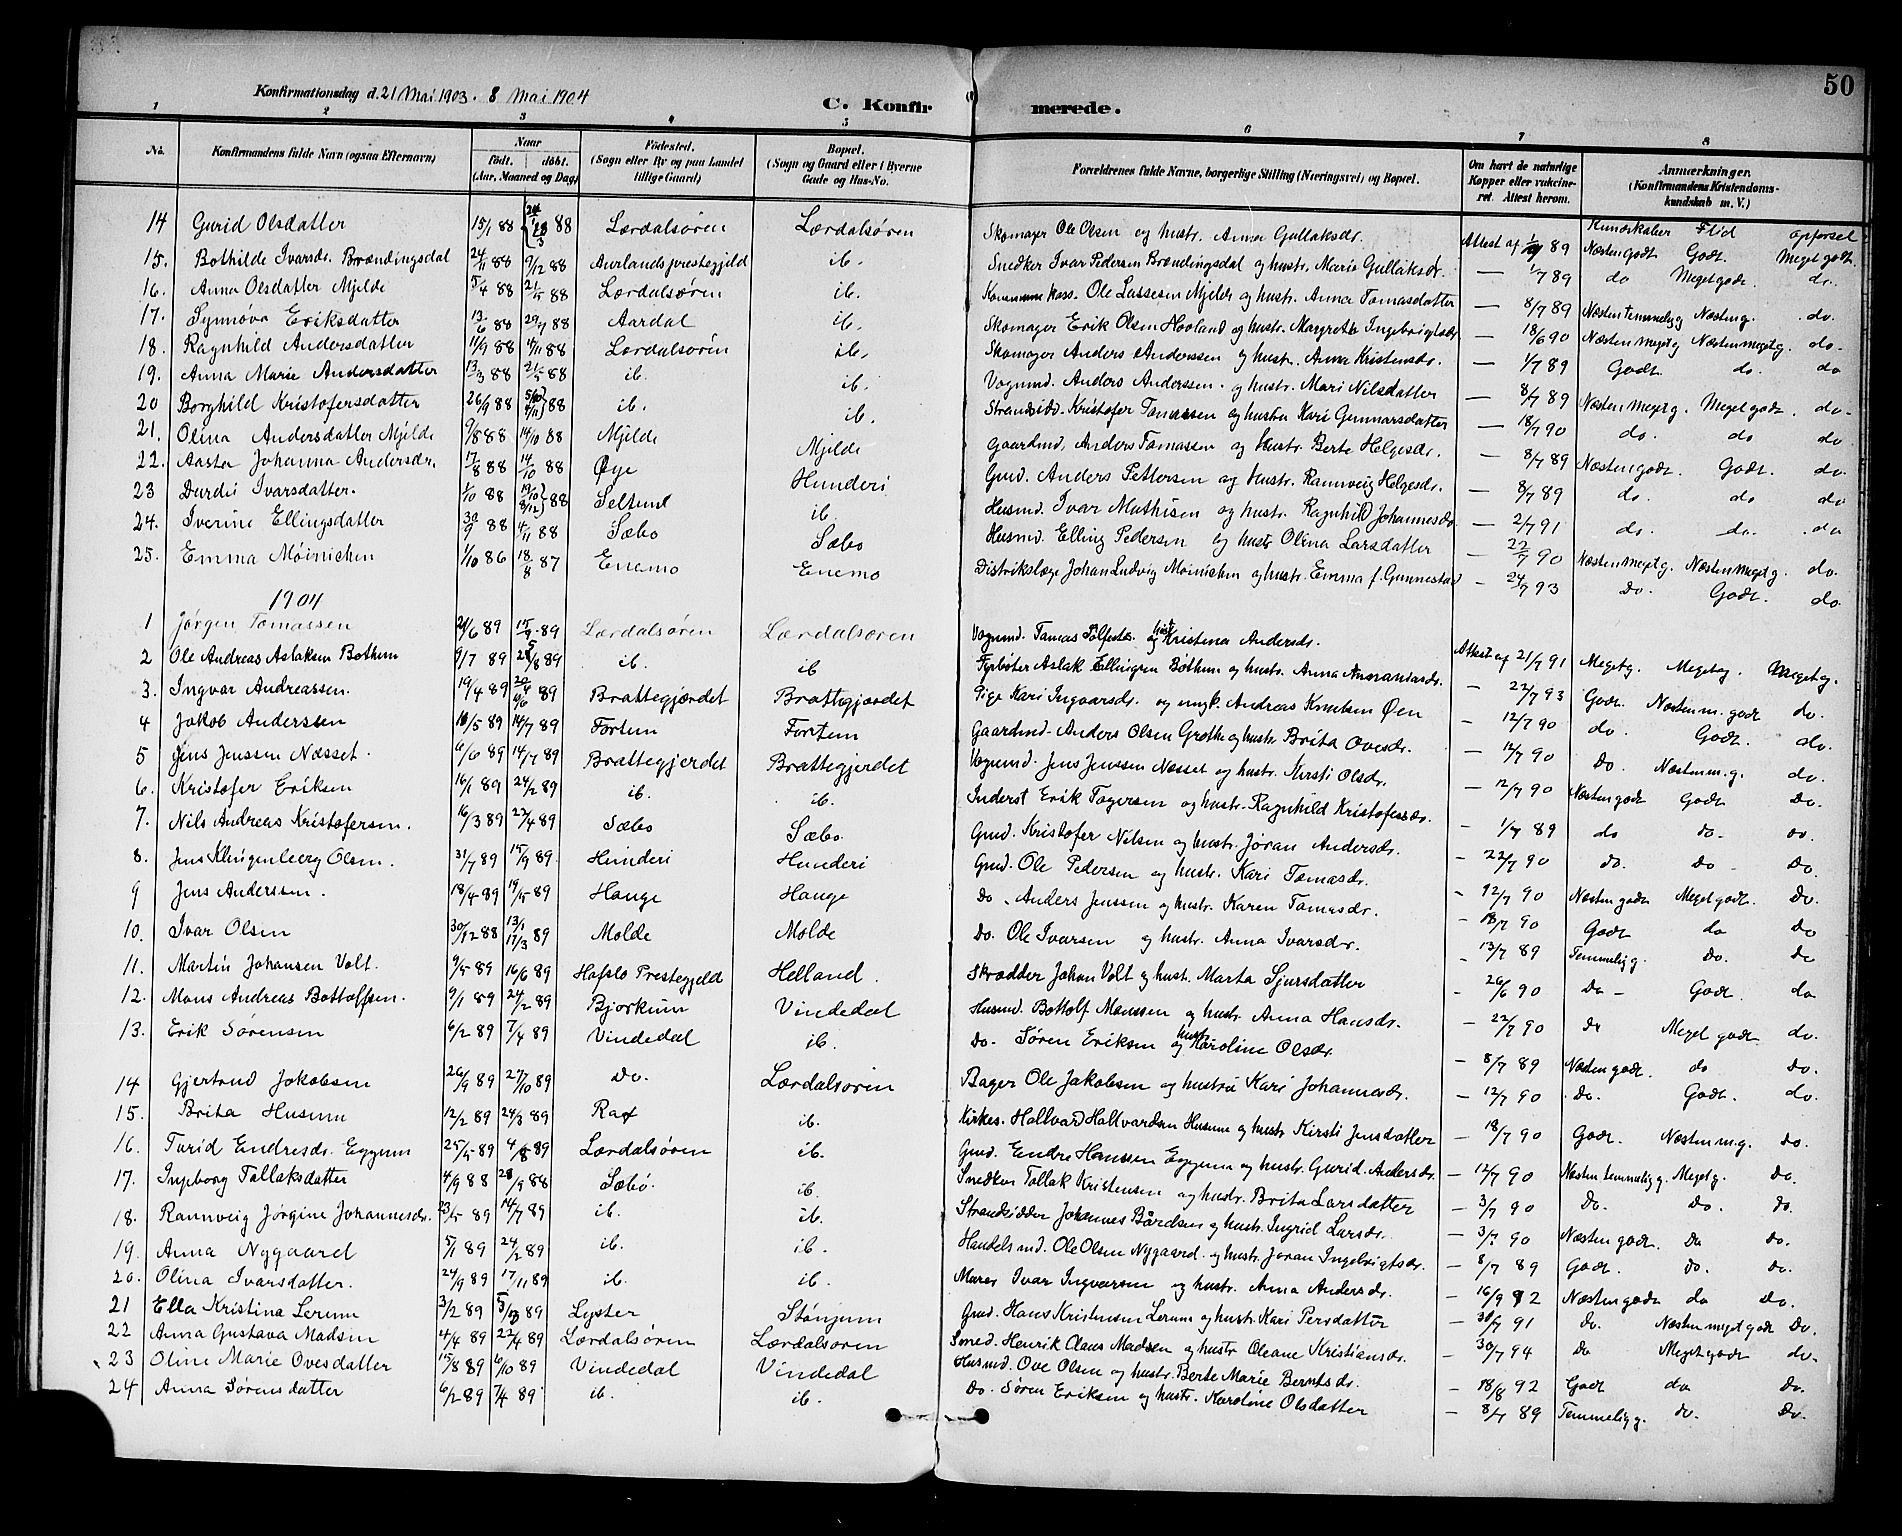 50
Konfirmationsdag d. 21 Mai 1903. 8 Mai 1904
C. Konfirmerede.
1 2 3 4 5 6 7 8
No. Konfirmandens fulde Navn (ogsaa Efternavn) Naar født. døbt. (Aar, Maaned og Dag) Fødested. (Sogn eller By og paa Landet tillige Gaard) Bopæl. (Sogn og Gaard eller i Byerne Gade og Hus-No. Forældrenes fulde Navne, borgerlige Stilling (Næringsvei) og Bopæl. Om havt de naturlige Kopper eller vakcineret. Attest herom. Anmærkninger. (Konfirmandens Kristendomskundskab m. V.)
Kundskaber Flid Opførsel
14 Gurid Olsdatter 15/1 88 88 Lærdalsøren Lærdalsøren Skomager Ole Olsen og hustr. Anna Gullaksdr. Attest af 89 Næsten godt Godt. Meget godt.
15. Bothilde Ivarsdr. Brændingsdal 24/11 88 9/12 88 Aurlands prestegjeld ib. Snedker Ivar Pedersen Brændingsdal og hustr. Marie Gullaksdr. — 1/7 89 do Meget godt. do.
16. Anna Olsdatter Mjelde 5/4 88 21/5 88 Lærdalsøren ib. Ole Lassesen Mjelde og hustr. Anna Tomasdatter — 8/7 89 Næsten temmelig g Næsten g. do.
17. Synnøva Eriksdatter 13/6 88 29/7 88 Aardal ib. Skomager Erik Olsen Hovland og hustr. Margrethe Ingebrigtsdr. — 18/6 90 Næsten meget g Næsten meget g. do.
18. Ragnhild Andersdatter 11/9 88 4/11 88 Lærdalsøren ib. Skomager Anders Anderssen og hustr. Anna Kristensdr. — 1/7 89 Godt. do. do
19. Anna Marie Andersdatter 13/3 88 21/5 88 ib. ib. Vognmd. Anders Anderssen. og hustr. Mari Nilsdatter — 8/7 89 Næsten meget g. Meget godt. do.
20 Borghild Kristofersdatter 26/9 88 88 ib. ib. Strandsidd. Kristofer Tomassen og hustru Kari Gunnarsdatter — 18/7 90 do. do do
21. Olina Andersdatter Mjelde 9/8 88 14/10 88 Mjelde Mjelde Gaardmd. Anders Tomassen og hustr. Berte Helgesdr. — 8/7 89 Næsten godt. Godt. do.
22. Aasta Johanna Andersdr. 17/8 88 14/10 88 Øye Hunderi Grmd. Anders Pettersen og hustr. Rannveig Helgesdr. — 8/7 89 do. do do
23 Durdei Ivarsdatter. 1/10 88 88 Seltund ib. Husmd. Ivar Mathisen og hustr. Ragnhild Johannesdr. — 2/7 91 do. do. do
24. Iverine Ellingsdatter 30/9 88 4/11 88 Sæbo Sæbo Husmd. Elling Pedersen og hustr Olina Larsdatter — 22/7 90 Næsten meget g. Næsten meget g. do.
25. Emma Møinichen 1/10 86 18/8 87 Enemo Enemo Distriktslæge Johan Ludvig Moinichen og hustr. Emma f. Gunnestad — 24/7 93 Do. Godt. do.
1904
1 Jørgen Tomassen 24/6 89 15/9 89 Lærdalsøren Lærdalsøren Vognmd. Tomas Solfestsen og hustr Kristena Andersdr. Attest af 21/7 91 Meget g. Meget g. Meget g.
2 Ole Andreas Aslaksen Bothun 9/7 89 89 ib. ib Fyrbøter Aslak Ellingsen Bøthun og hustr. Anna — 22/7 93 Godt. Næsten m. godt do.
3. Ingvar Andreassen. 19/4 89 89 Brattegjærdet Brattegjærdet Pige Kari Ingvarsdr. og ungk. Andreas Knutsen Øen — 12/7 90 do. Godt. do.
4 Jakob Anderssen 10/5 89 14/7 89 Fortun Fortun Gaardmd. Anders Olsen Grøthe og hustr Brita Ovesdr. — 12/7 90 Do. Næsten m. g. do.
5 Jens Jenssen Næsset. 6/6 89 14/7 89 Brattegjerdet Brattegjerdet Vognmd. Jens Jenssen Næsset og hustr. Kirsti Olsdr. — 12/7 90 Næsten godt Godt Do.
6. Kristofer Eriksen 16/1 89 24/2 89 ib. ib. Inderst Erik Togersen og hustr. Ragnhild Kristofersdr. — 1/7 89 do do. do.
7. Nils Andreas Kristofersen. 16/3 89 22/4 89 Sæbo Sæbo. Grmd. Kristofer Nilsen og hustr. Jøran Andersdr. — 22/7 90 do. Do Do.
8. Jens Klingenberg Olsen. 31/7 89 15/9 89. Hunderi Hunderi Grmd. Ole Pedersen og hustr. Kari Tomasdr. — 12/7 90 Næsten godt Meget godt. Do.
9 Jens Anderssen. 18/4 89 19/5 89 Hauge Hauge Do. Anders Jenssen og hustr. Karen Tomasdr. — 18/7 90 Godt do Do
10. Ivar Olsen 30/12 88 13/1 17/3 89 Molde Molde Do. Ole Ivarsen og hustr. Anna Ivarsdr. — 13/7 89 Temmelig g. Do. Do
11. Martin Johansen Volt. 9/5 89 16/6 89 Hafslo Prestegjeld Helland. Skrædder Johan Volt og hust. Marta Sjursdatter — 26/6 90 Do — Godt. do
12. Mons Andreas Bottolfsen. 9/1 89 24/2 89 Bjorkum Vindedal Husmd. Bottolf Monssen og hustr. Anna Hansdr. — 22/7 90 do Meget godt. do.
13. Erik Sørensen 6/2 89 7/4 89 Vindedal ib. Do. Søren Eriksen og hustr Karoline Olsdr. — 8/7 89 Næsten godt. do Do.
14 Gjertrud Jakobsen 26/9 89 27/10 89 Do. Lærdalsøren Bager Ole Jakobsen og hustru Kari Johannesdr. — 12/7 90 Do. Godt. do.
15. Brita Husum 12/2 89 24/3 89 Raa ib. Kirkes. Hallvard Hallvardsen Husum og hustr Kirsti Jensdatter — 18/7 90 Godt. Næsten m. g. Do.
16. Turid Endresdr. Eggum 25/5 89 4/8 89 Lærdalsøren ib. Grmd. Endre Hanssen Eggum og hustr. Gurid Andersdr. — 12/7 90 Næsten temmelig g. Meget g. Do.
17. Ingeborg Tollaksdatter 4/9 88 88 Sæbø. ib. Snedker Tollak Kristensen og hustr. Brita Larsdatter — 3/7 90 Do. Do. Do.
18. Rannveig Jørgine Johannesdr. 23/5 89 14/7 89 ib. ib. Strandsidder Johannes Bårdsen og hustr. Ingrid Larsdr. — 3/7 90 Næsten godt. Do Do.
19. Anna Nygaard 5/1 89 24/2 89 ib. ib. Handelsmd. Ole Olsen Nygaard. og hustr. Jøran Ingebrigtsdr. — 8/7 89 Godt. Do. Do.
20. Olina Ivarsdatter. 24/9 89 17/11 89 ib. ib. Murer Ivar Ingvarsen og hustr. Anna Andersdr. — 16/9 92 Næsten godt do Do.
21 Ella Kristina Lerum 3/2 89 89 Lyster Stønjum Grmd. Hans Kristensen Lerum og hustr. Kari Persdatter — 30/7 91 do. Næsten meget godt Do.
22 Anna Gustava Madsen 4/4 89 22/4 89 Lærdalsøren Lærdalsøren Smed. Henrik Claus Madsen og hustr Oleane Kristiansdr. — 30/7 94 Do Meget godt do.
23 Oline Marie Ovesdatter 15/8 89 6/10 89 Vindedal Vindedal Husmd. Ove Olsen og hustr. Berte Marie Berntsdr. — 18/8 92 Godt do Do.
24 Anna Sørensdatter 6/2 89 7/4 89 ib. ib. Do. Søren Eriksen og hustr. Karoline Olsdatter — 8/7 89 Temmelig g. do. Do.